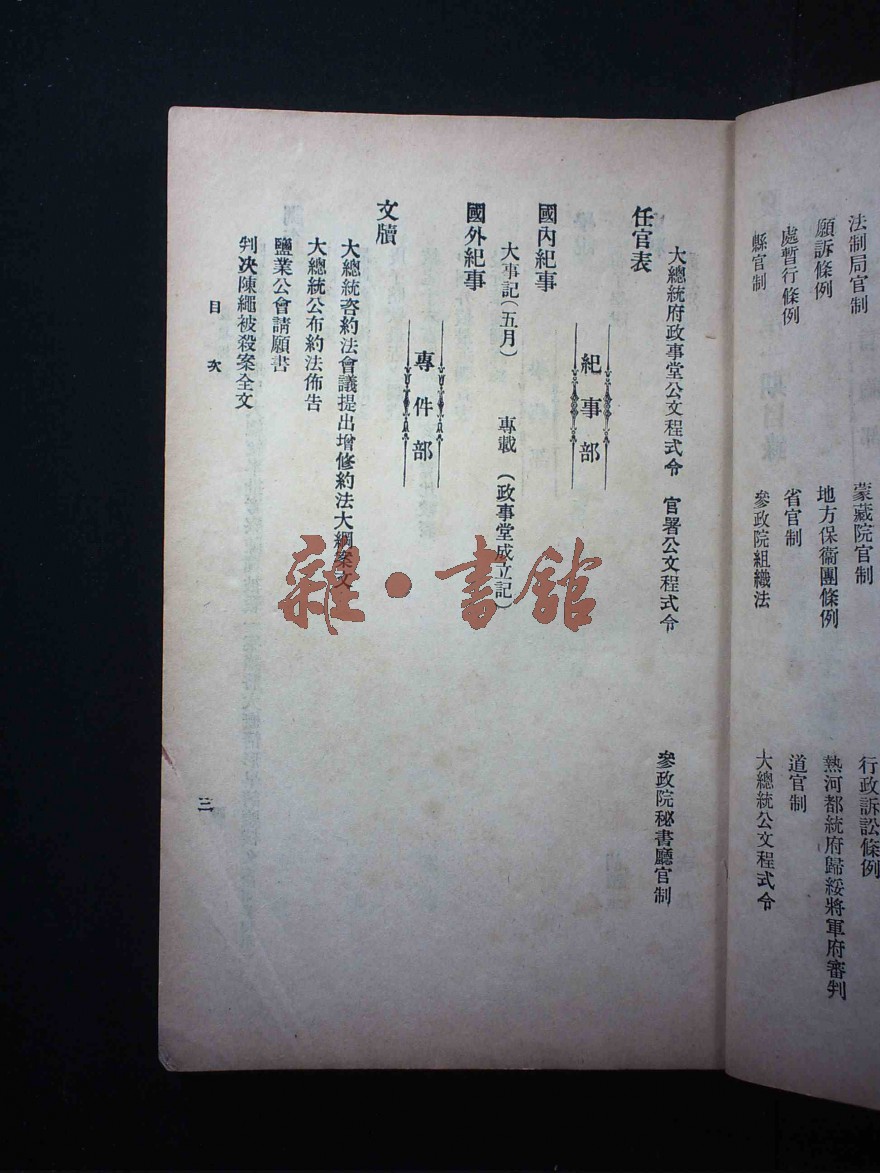 法制局官制　蒙藏院官制　行政訴訟條例
願訴條例　地方保衞團條例　熱河都統府歸綏將軍府審判
處暫行條例　省官制　道官制
縣官制　參政院組織法　大總統公文程式令
大總統府政事堂公文程式令　官署公文程式令　參政院秘書廳官制
任官表
紀事部
國內紀事
大事記(五月)　專載(政事堂成立記)
國外紀事
專件部
文牘
大總統咨約法會議提出增修約法大綱案文
大總統公布約法佈告
鹽業公會請願書
判决陳繩被殺案全文
目次
三
雜·書館